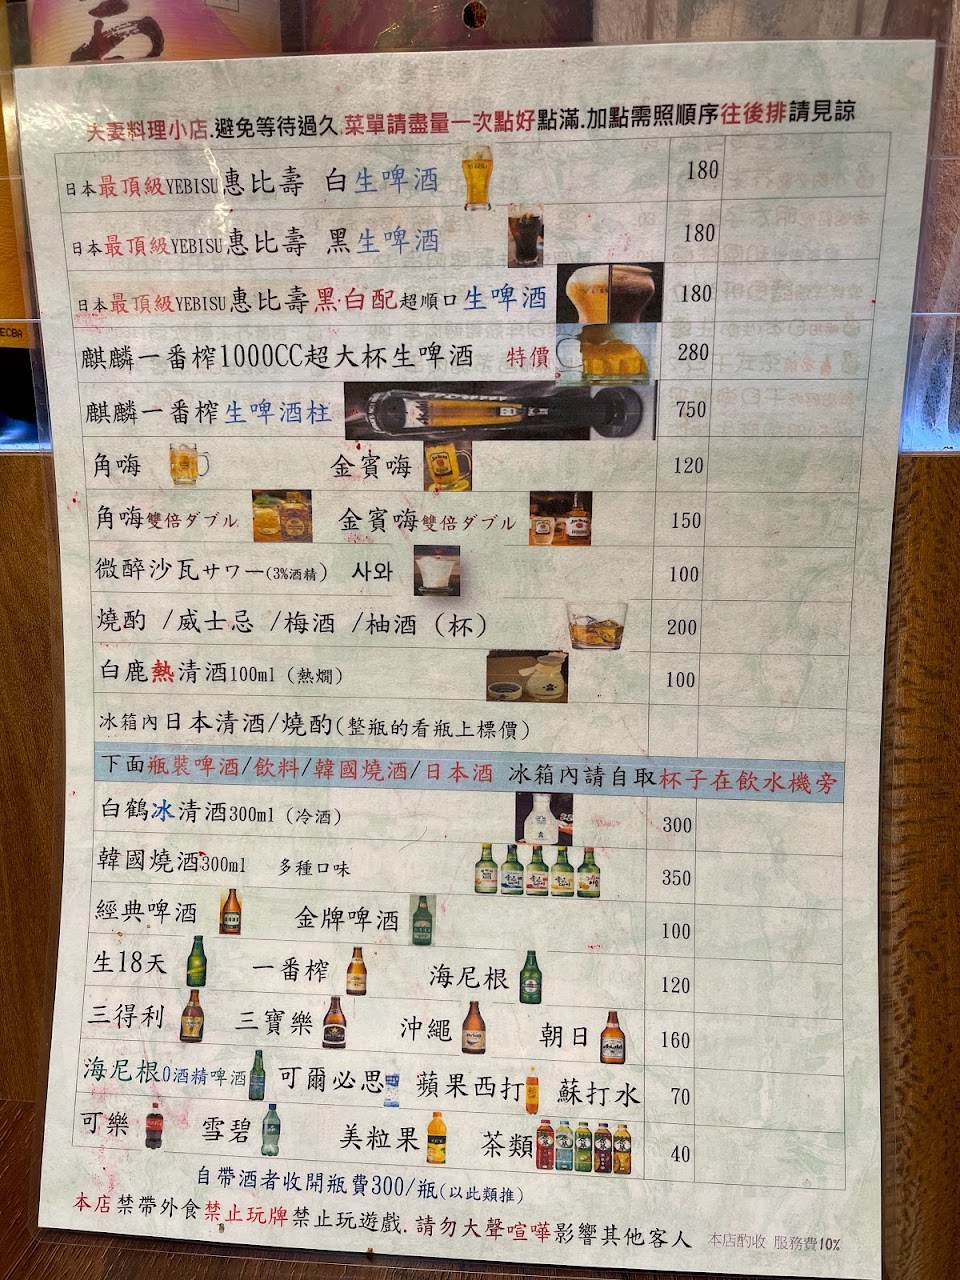 夫妻料理小店.避免等待過久,菜單請盡量一次點好點滿.加點需照順序往後排請見諒
日本最頂級YEBISU惠比壽 白生啤酒 180
日本最頂級YEBISU惠比壽 黑生啤酒 180
日本最頂級YEBISU惠比壽黑·白配超順口生啤酒 180
麒麟一番榨1000CC超大杯生啤酒 特價 280
麒麟一番榨生啤酒柱 750
角嗨 金賓嗨 120
角嗨雙倍ダブル 金賓嗨雙倍ダブル 150
微醉沙瓦サワー(3%酒精) 사와 100
燒酌 /威士忌 /梅酒 /柚酒 (杯) 200
白鹿熱清酒100ml (熱燗) 100
冰箱內日本清酒/燒酌(整瓶的看瓶上標價)
下面瓶裝啤酒/飲料/韓國燒酒/日本酒 冰箱內請自取杯子在飲水機旁
白鶴冰清酒300ml (冷酒) 300
韓國燒酒300ml 多種口味 350
經典啤酒 金牌啤酒 100
生18天 一番榨 海尼根 120
三得利 三寶樂 沖繩 朝日 160
海尼根0酒精啤酒 可爾必思 蘋果西打 蘇打水 70
可樂 雪碧 美粒果 茶類 40
自帶酒者收開瓶費300/瓶(以此類推)
本店禁帶外食禁止玩牌禁止玩遊戲.請勿大聲喧嘩影響其他客人 本店酌收 服務費10%